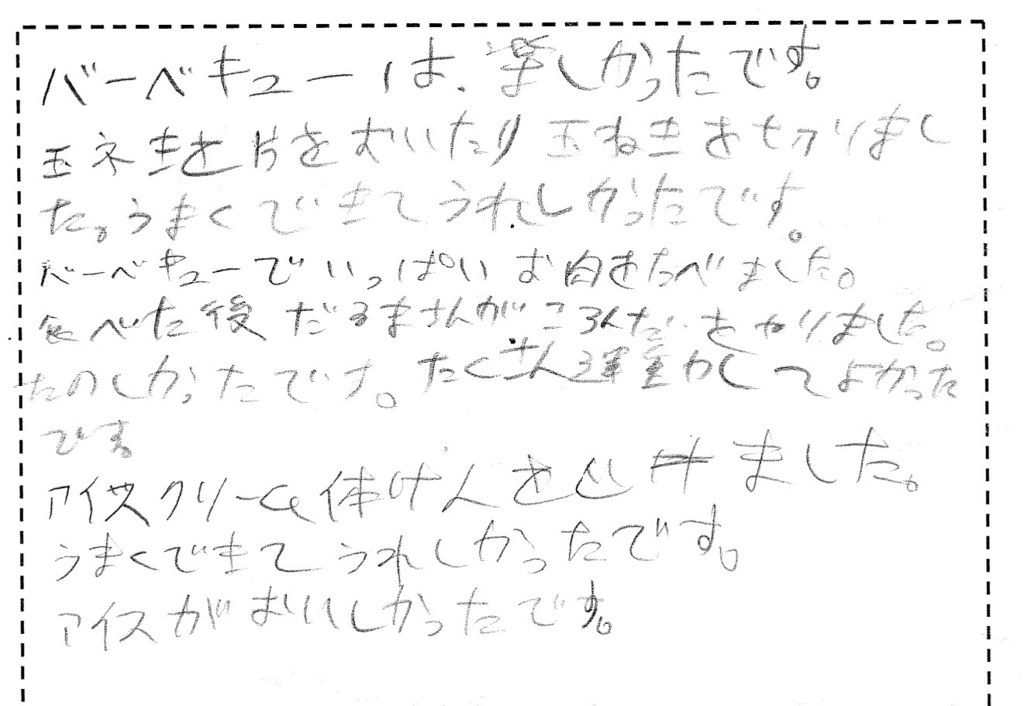 バーベキューは、楽しかったです。
玉ネギを片をむいたり玉ねぎを切りまし
た。うまくできてうれしかったです。
バーベキューでいっぱいお肉をたべました。
食べた後だるまさんがころんだをやりました。
たのしかったです。たくさん運動してよかった
です。
アイスクリーム体けんをしました。
うまくできてうれしかったです。
アイスがおいしかったです。